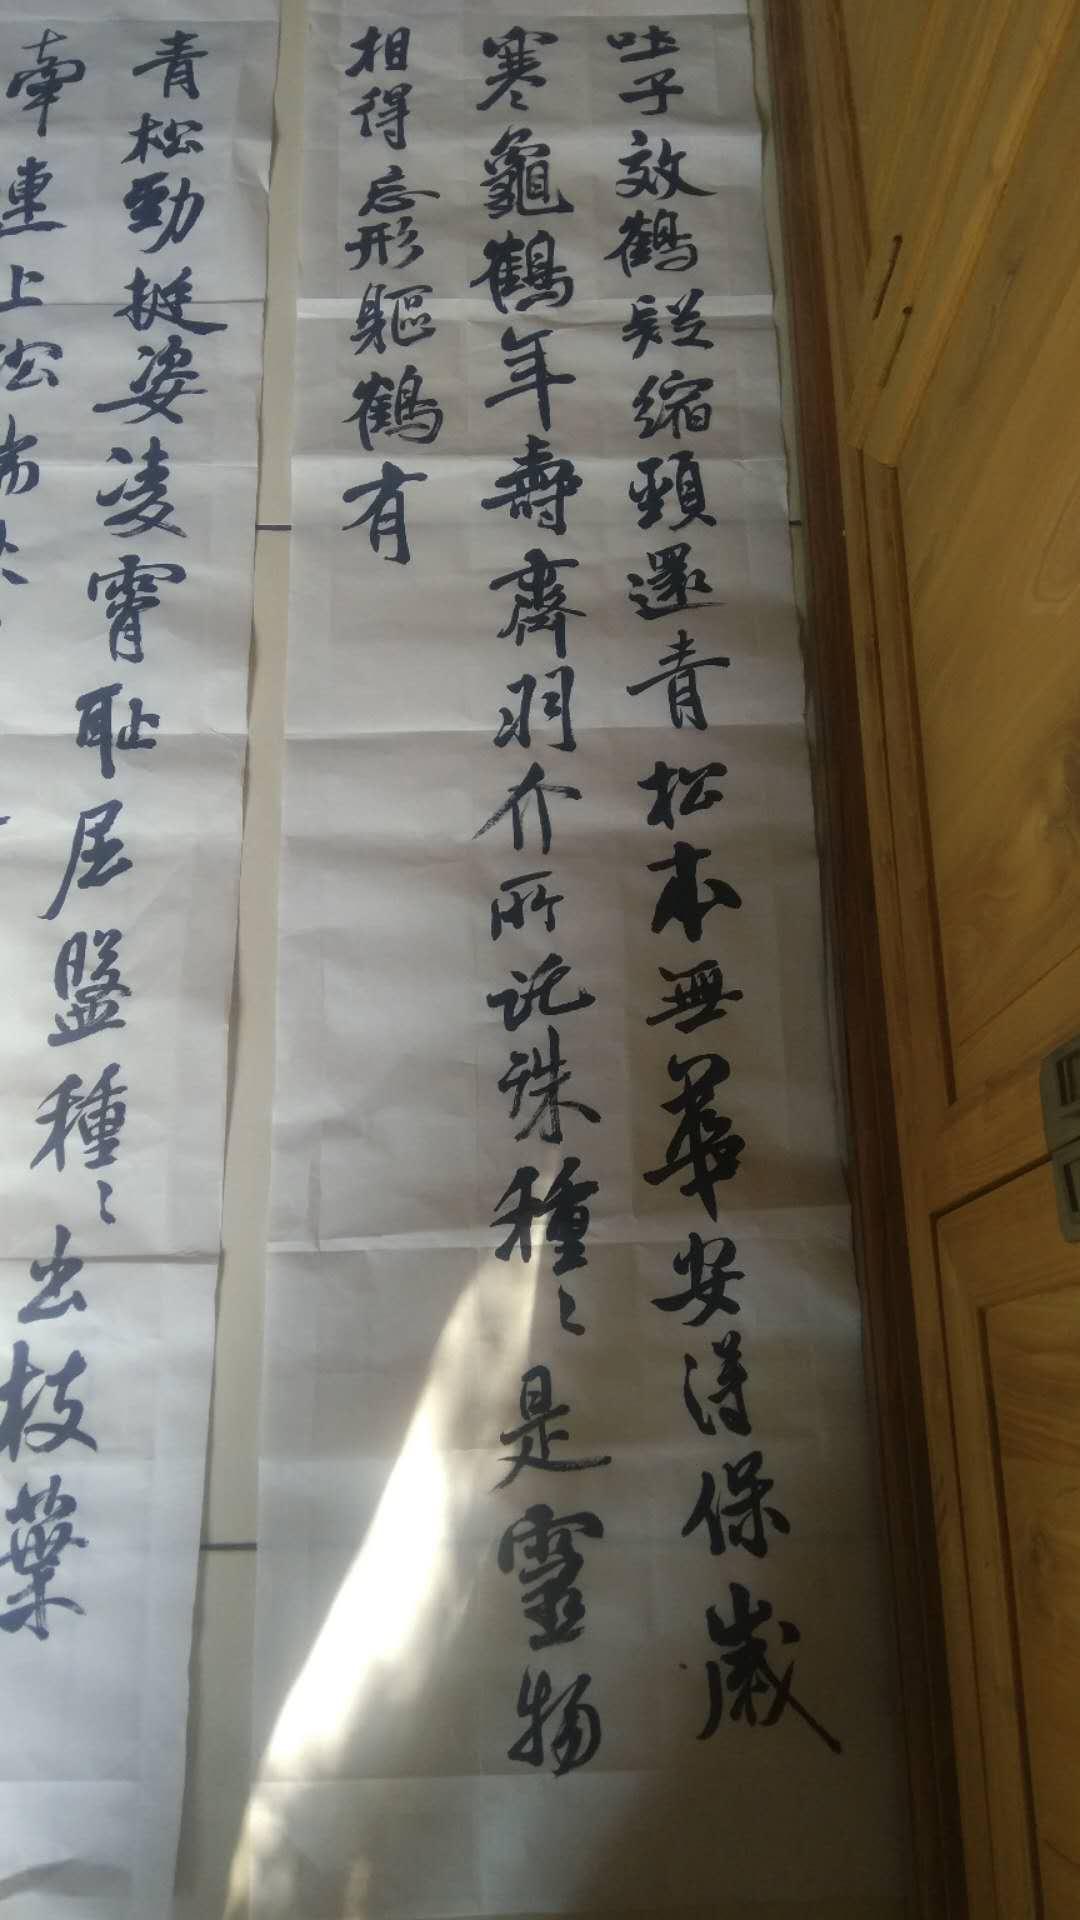 吐子效鶴疑縮頸還青松本無華安得保歲
寒〻龜鶴年壽齊羽介所託殊種〻是靈物
相得忘形軀鶴有
青松勁挺姿凌霄恥屈盤種〻出枝葉
牽連上松端秋